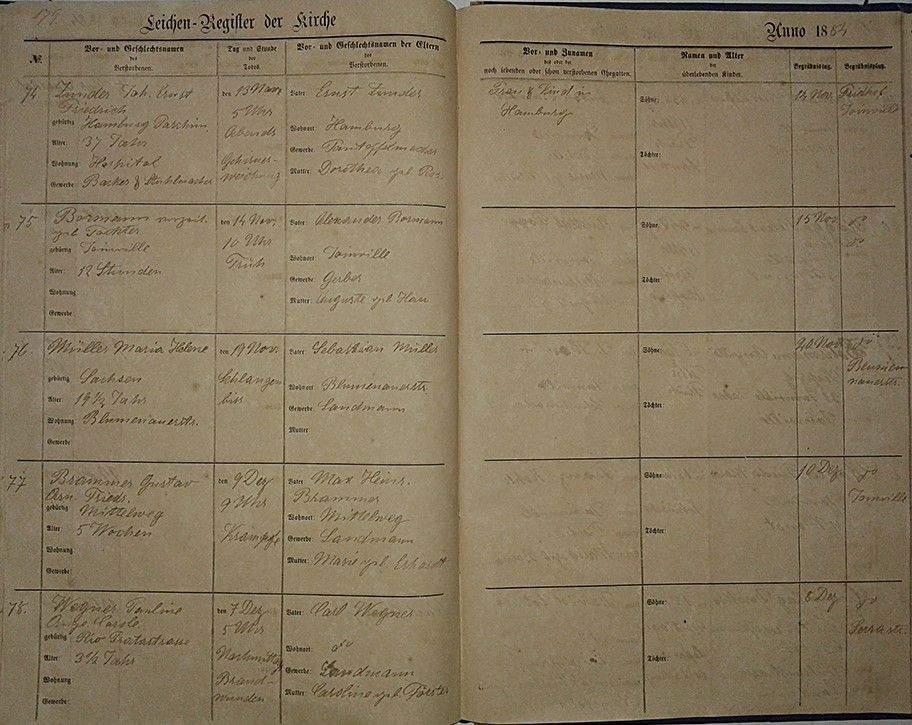 Leichen-Register der Kirche
№
Vor- und Geschlechtsnamen
des
Verstorbenen.
Tag und Stunde
des
Todes.
Vor- und Geschlechtsnamen der Eltern
des
Verstorbenen.
74
Zunder Joh. Ernst
Friedrich
gebürtig Hamburg Parchim
Alter: 37 Jahr
Wohnung Hospital
Gewerbe: Backer & Stuhlmacher
den 13 Nov.
5 Uhr
Abends
Vater: Ernst Zunder
Wohnort Hamburg
Gewerbe: Pantoffelmacher
Mutter: Dorothea geb.
75
Bormann
geb Tochter
gebürtig Joinville
Alter: 12 Stunden
Wohnung
Gewerbe:
den 14 Nov.
10 Uhr
Früh
Vater: Alexander Bormann
Wohnort: Joinville
Gewerbe: Gerber
Mutter: Auguste geb
76.
Müller Maria Helene
gebürtig Sachsen
Alter 19½ Jahr
Wohnung Blumenauerstr.
Gewerbe:
den 19 Nov.
Schlangen
biss
Vater: Sebastian Müller
Wohnort Blumenauerstr
Gewerbe: Landmann
Mutter
77
Brammer Gustav
Frieds.
gebürtig Mittelweg
Alter: 5 Wochen
Wohnung
Gewerbe:
den 9 Dez
9 Uhr
Krämpfe
Vater Max Heinr.
Brammer
Wohnort: Mittelweg
Gewerbe: Landmann
Mutter: Marie geb. Erhardt
78.
Wegner Pauline
gebürtig Rio Pratastrasse
Alter: 3¾ Jahr
Wohnung
Gewerbe:
den 7 Dez
5 Uhr
Nachmittag
Brand-
wunden
Vater: Carl Wegner
Wohnort: do
Gewerbe: Landmann
Mutter: Caroline geb. Förster
Anno 1884
Vor- und Zunamen
des oder der
noch lebenden oder schon verstorbenen Ehegatten.
Namen und Alter
der
überlebenden Kinder.
Begräbnißtag.
Begräbnißplatz.
Frau & Kind in
Hamburg
Söhne:
Töchter:
14 Nov.
Friedhof
Joinville
Söhne:
Töchter:
15 Nov.
do
do
Söhne:
Töchter:
20 Nov.
do
Blumen
nauerstr.
Söhne:
Töchter:
10 Dez
do
Joinville
Söhne:
Töchter:
8 Dez
do
Serrastr.